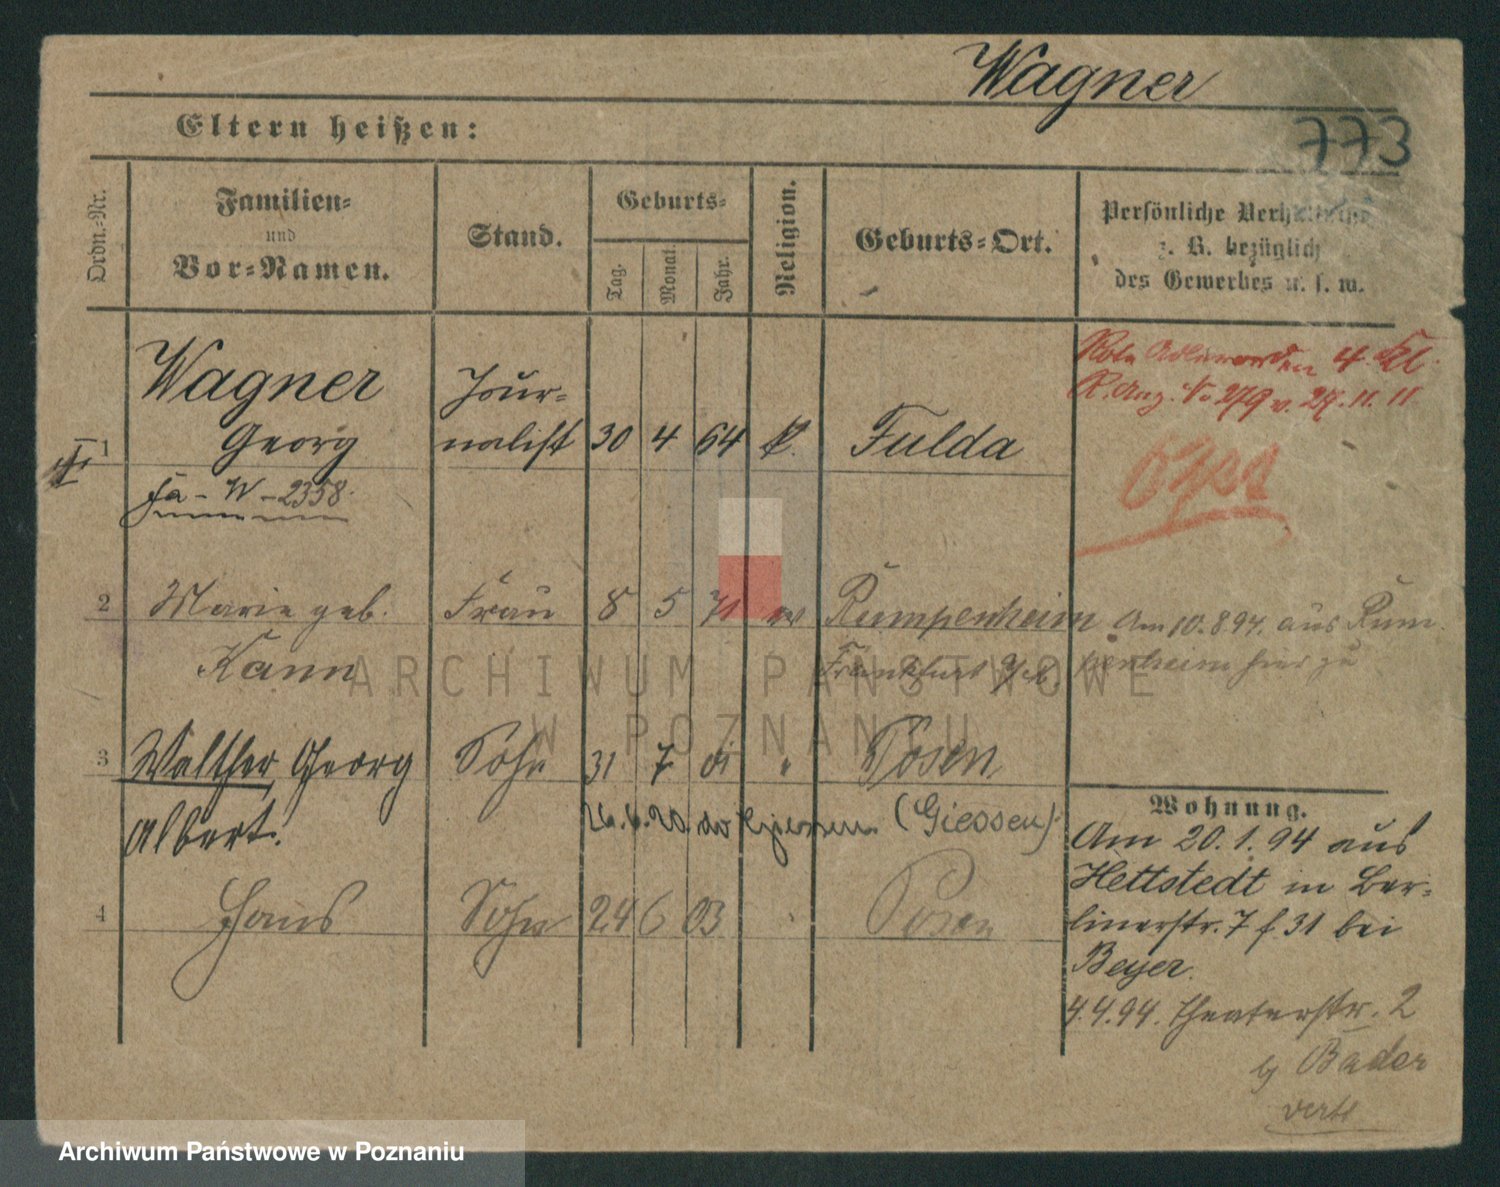 Wagner
773
Eltern heißen:
Ordn.-Nr.
Familien-
und
Vor-Namen.
Stand.
Geburts-
Tag.
Monat.
Jahr.
Religion.
Geburts-Ort.
Persönliche Verhältnisse
z. B. bezüglich
des Gewerbes u. s. w.
1
Wagner
Georg
Jour-
nalist
30 4 64 k.
Fulda
4. Kl.
R. Anz. No 279 v. 27.11.11
fa - W - 2358.
2
Marie geb.
Kann
Frau
8 5 71
Rumpenheim
Frankfurt
Am 10.8 97. aus Rum
penheim hier zu
3
Walther, Georg
Albert.
Sohn
31 7 01 "
Posen
26.6.20. Giessen (Giessen)
4
Hans
Sohn
24 6 03
Posen
Wohnung.
Am 20.1.94 aus
Hettstedt in Ber-
linerstr. 7 f. 31 bei
Beyer.
4.4.94. Theaterstr. 2
b/ Bader
verte
ARCHIWUM PAŃSTWOWE
W POZNANIU
Archiwum Państwowe w Poznaniu